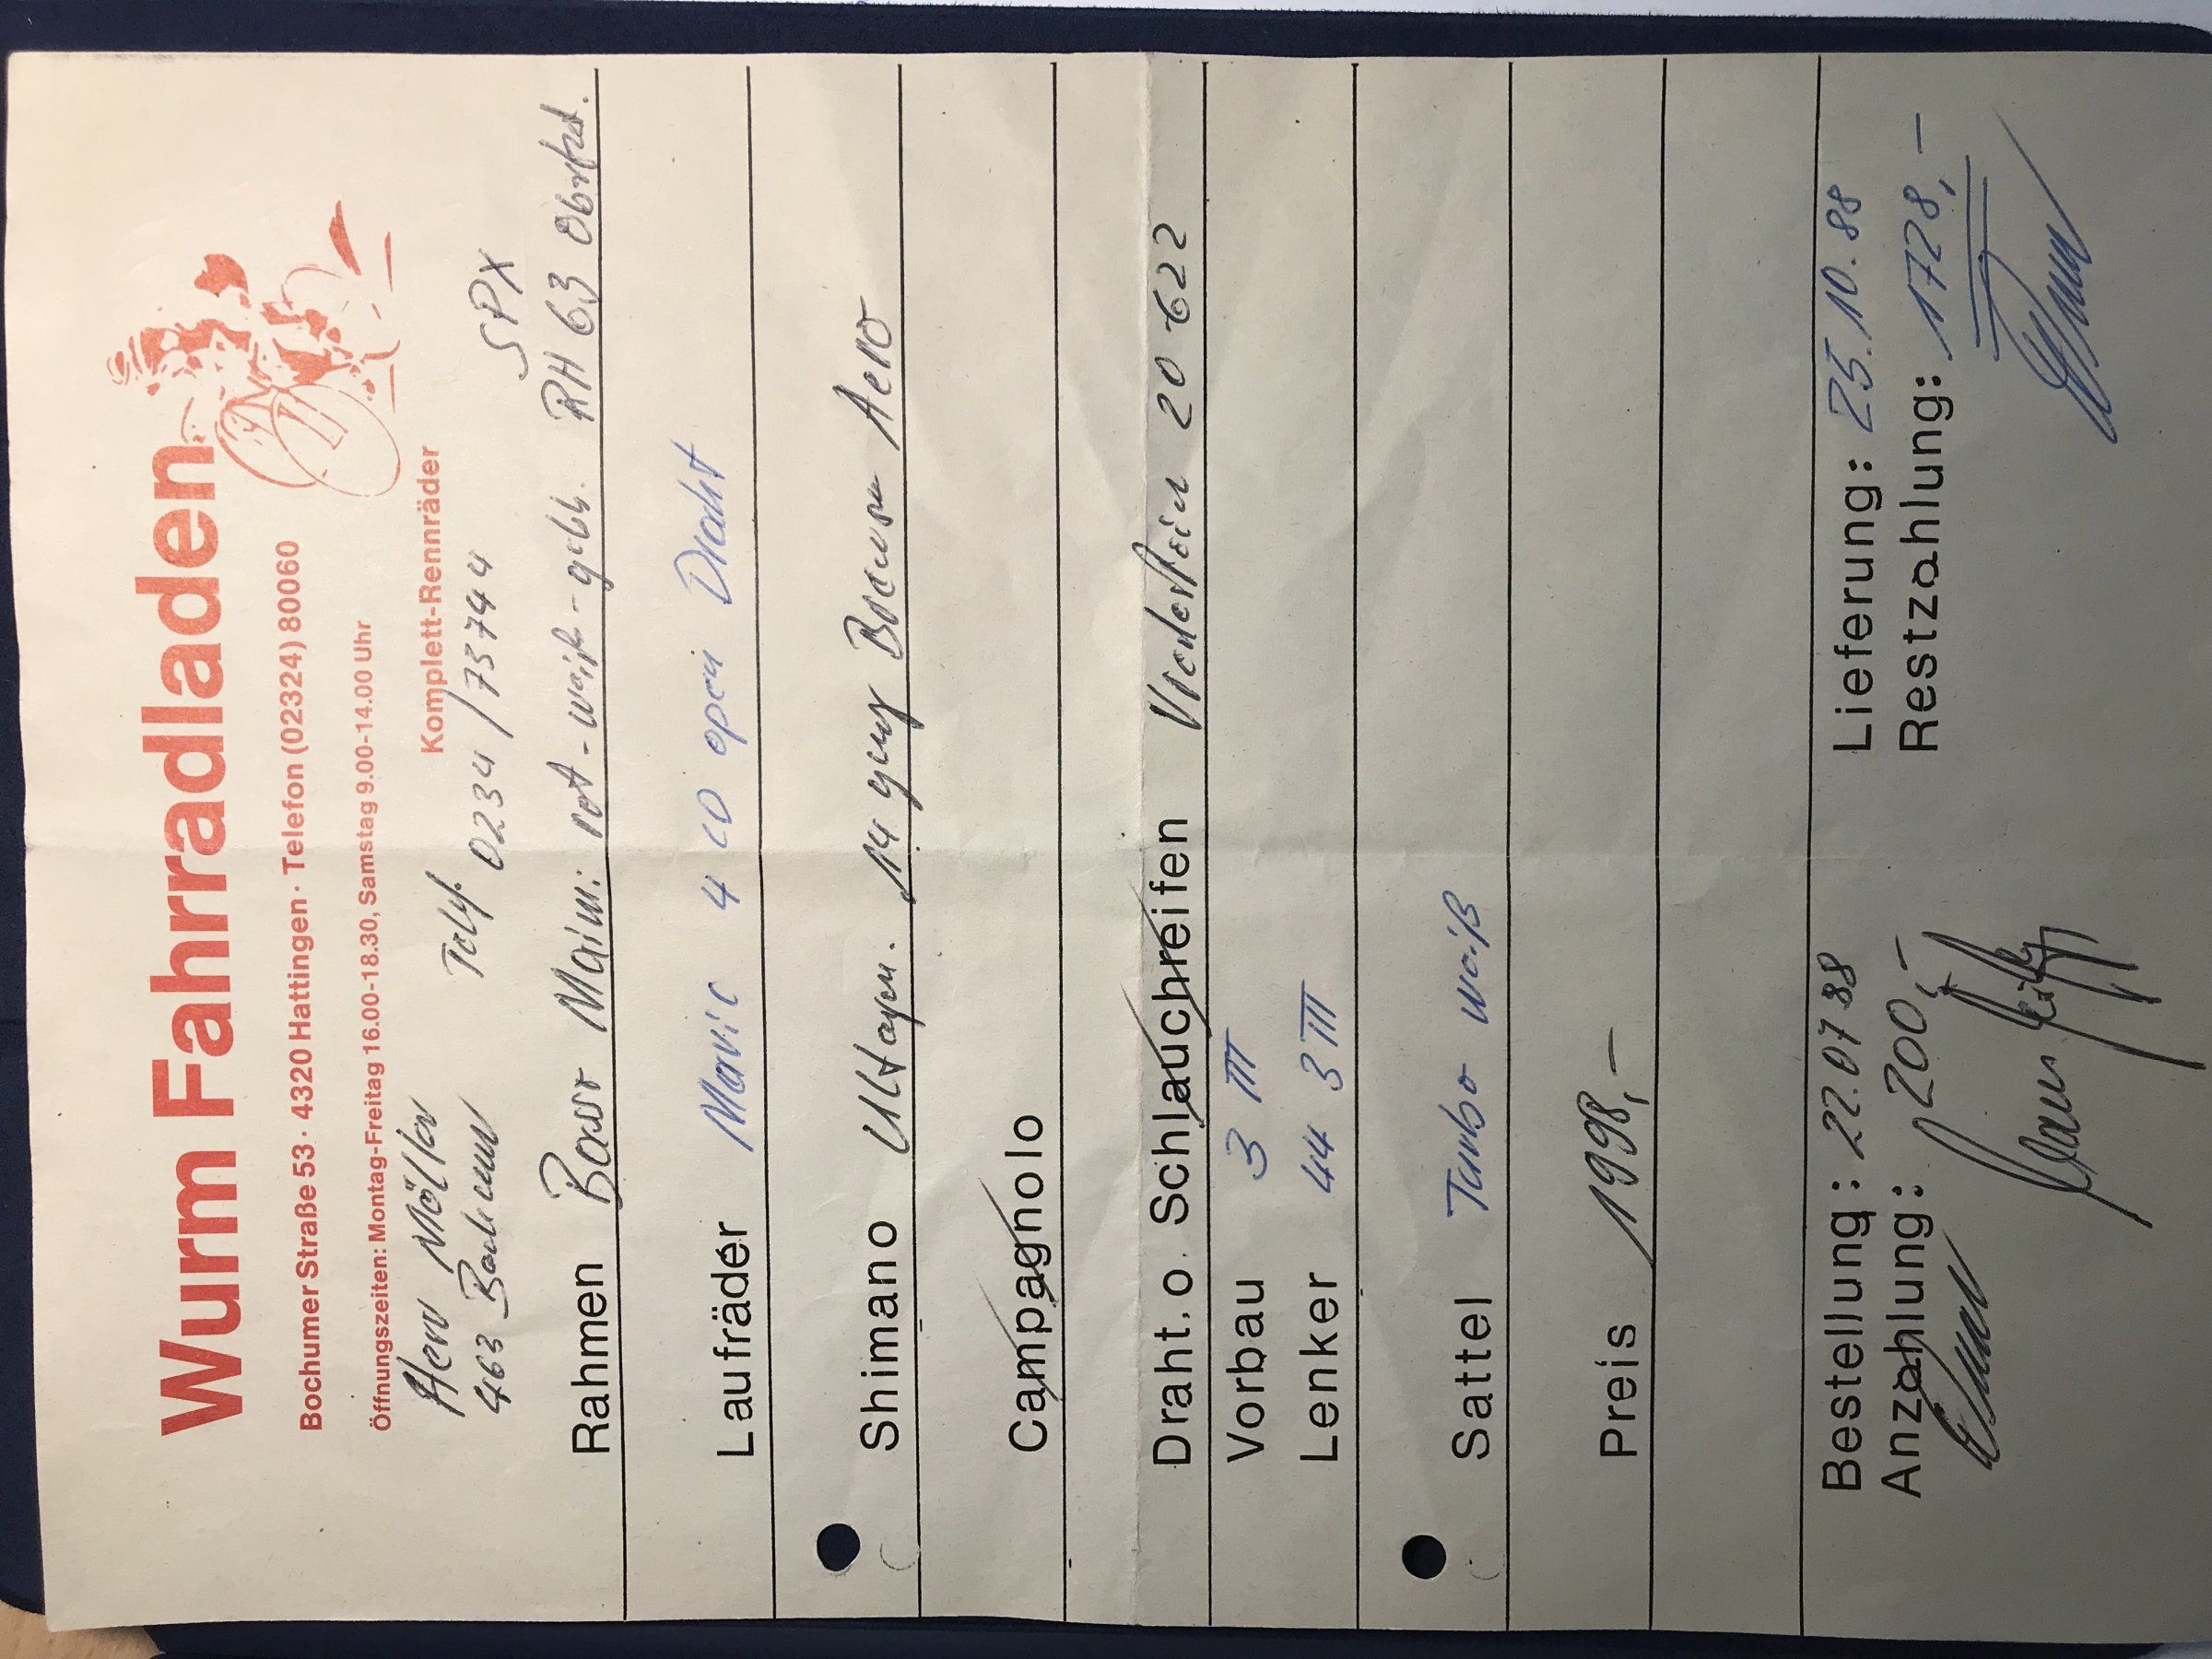 Wurm Fahrradladen
Bochumer Straße 53 · 4320 Hattingen · Telefon (02324) 80060
Öffnungszeiten: Montag-Freitag 16.00-18.30, Samstag 9.00-14.00 Uhr
Komplett-Rennräder
Herr Möller Telf. 0234/73744
463 Bochum SPX
Rahmen Basso Maim: rot-weiß-gelb. RH 63
Laufräder Mavic 4 CD open Draht
Shimano Ultegra. 14 gang Bremsen Aero
Campagnolo
Draht. o. Schlauchreifen Vredestein 20 622
Vorbau 3 TTT
Lenker 44 3TTT
Sattel Turbo weiß
Preis 1998,-
Bestellung: 22.07 88 Lieferung: 25.10.88
Anzahlung: 200,- Restzahlung: 1728,-